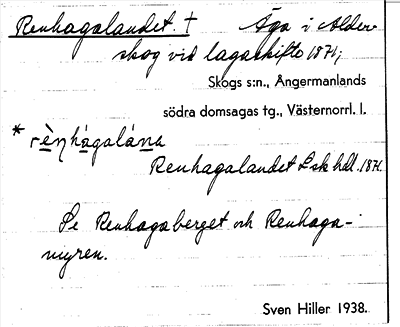 Renhagalandet. † Äga i Alder-
skog vid lagaskifte 1871;
Skogs s:n., Ångermanlands
södra domsagas tg., Västernorrl. l.
* rènhágalána
Renhagalandet Lsk hdl. 1871.
Se Renhagaberget och Renhaga-
myren.
Sven Hiller 1938.